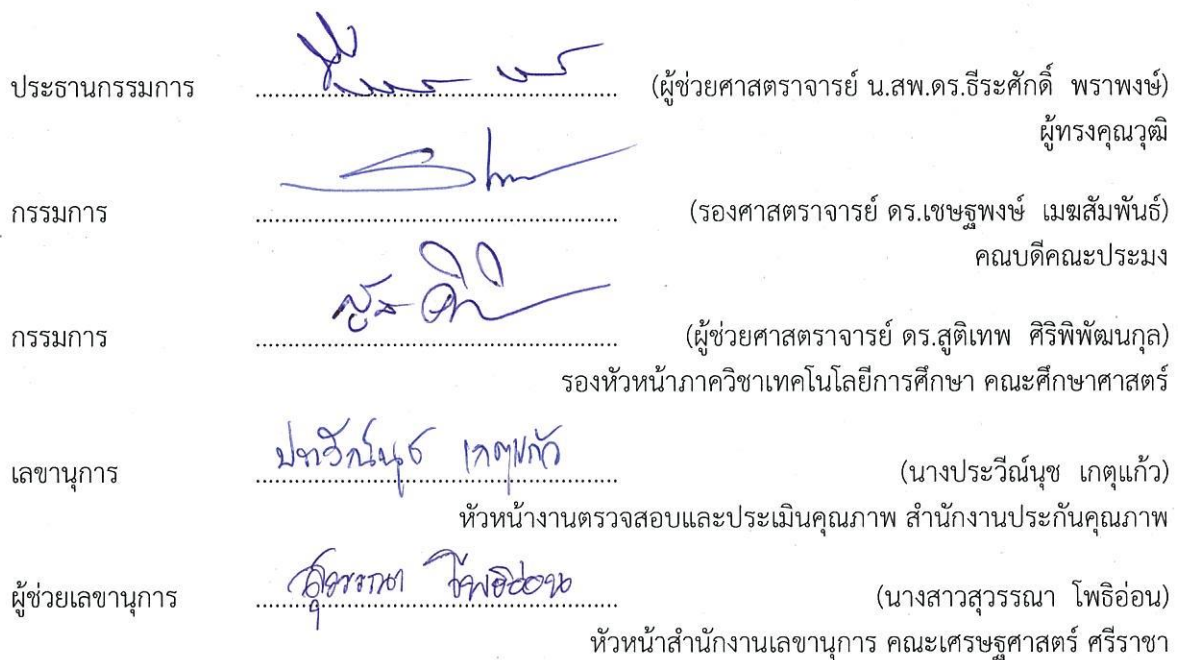 ประธานกรรมการ ............................................................ (ผู้ช่วยศาสตราจารย์ น.สพ.ดร.ธีระศักดิ์ พราพงษ์)
ผู้ทรงคุณวุฒิ
กรรมการ ............................................................ (รองศาสตราจารย์ ดร.เชษฐพงษ์ เมฆสัมพันธ์)
คณบดีคณะประมง
กรรมการ ............................................................ (ผู้ช่วยศาสตราจารย์ ดร.สูติเทพ ศิริพิพัฒนกุล)
รองหัวหน้าภาควิชาเทคโนโลยีการศึกษา คณะศึกษาศาสตร์
ประวีณ์นุช เกตุแก้ว
เลขานุการ ............................................................ (นางประวีณ์นุช เกตุแก้ว)
หัวหน้างานตรวจสอบและประเมินคุณภาพ สำนักงานประกันคุณภาพ
สุวรรณา โพธิอ่อน
ผู้ช่วยเลขานุการ ............................................................ (นางสาวสุวรรณา โพธิอ่อน)
หัวหน้าสำนักงานเลขานุการ คณะเศรษฐศาสตร์ ศรีราชา